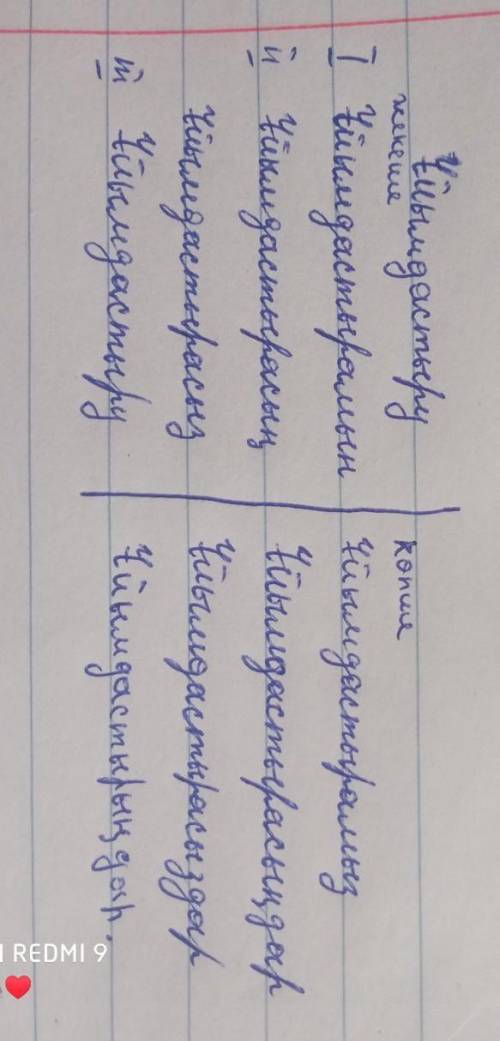 Ұйымдастыру
жекеше көпше
I Ұйымдастырамын Ұйымдастырамыз
II Ұйымдастырасың Ұйымдастырасыңдар
Ұйымдастырасыз Ұйымдастырасыздар
III Ұйымдастыру Ұйымдастырыңдар.
REDMI 9